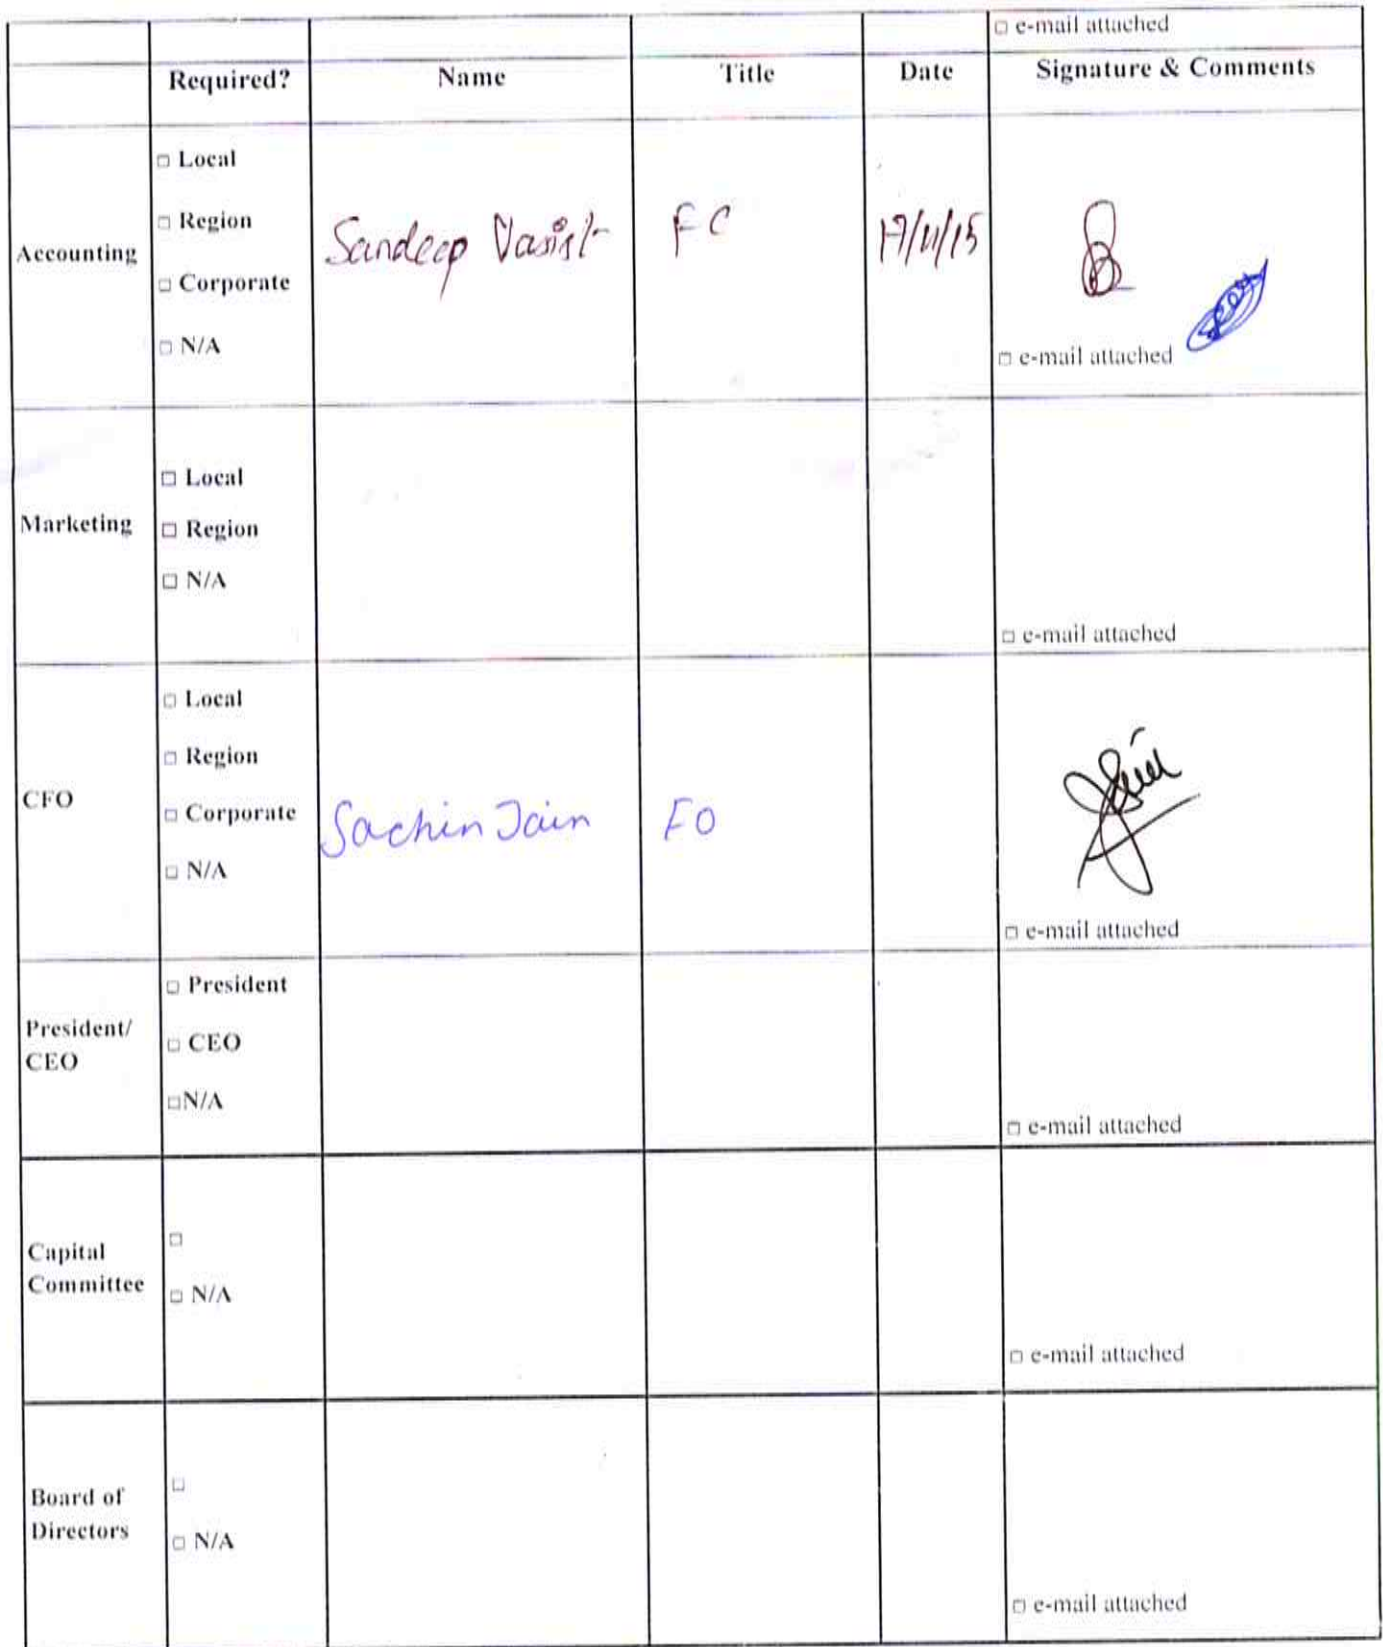 □ e-mail attached
Required? Name Title Date Signature & Comments
Accounting
□ Local
□ Region
□ Corporate
□ N/A
Sandeep Vasist FC 17/11/15
□ e-mail attached
Marketing
□ Local
□ Region
□ N/A
□ e-mail attached
CFO
□ Local
□ Region
□ Corporate
□ N/A
Sachin Jain FO
□ e-mail attached
President/
CEO
□ President
□ CEO
□N/A
□ e-mail attached
Capital
Committee
□
□ N/A
□ e-mail attached
Board of
Directors
□
□ N/A
□ e-mail attached